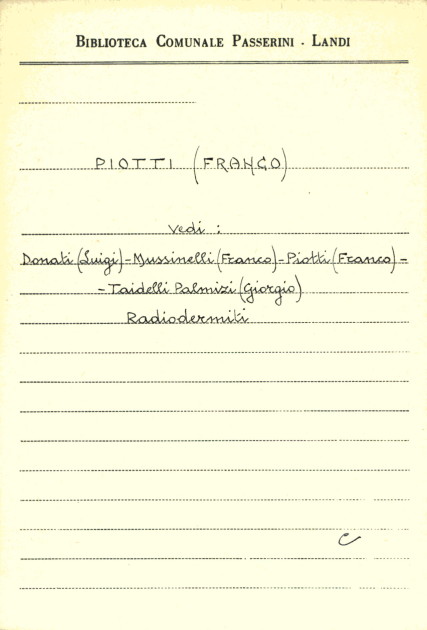 BIBLIOTECA COMUNALE PASSERINI - LANDI
PIOTTI (FRANCO)
Vedi :
Donati (Luigi) - Mussinelli (Franco) - Piotti (Franco) -
- Taidelli Palmizi (Giorgio)
Radiodermiti
C